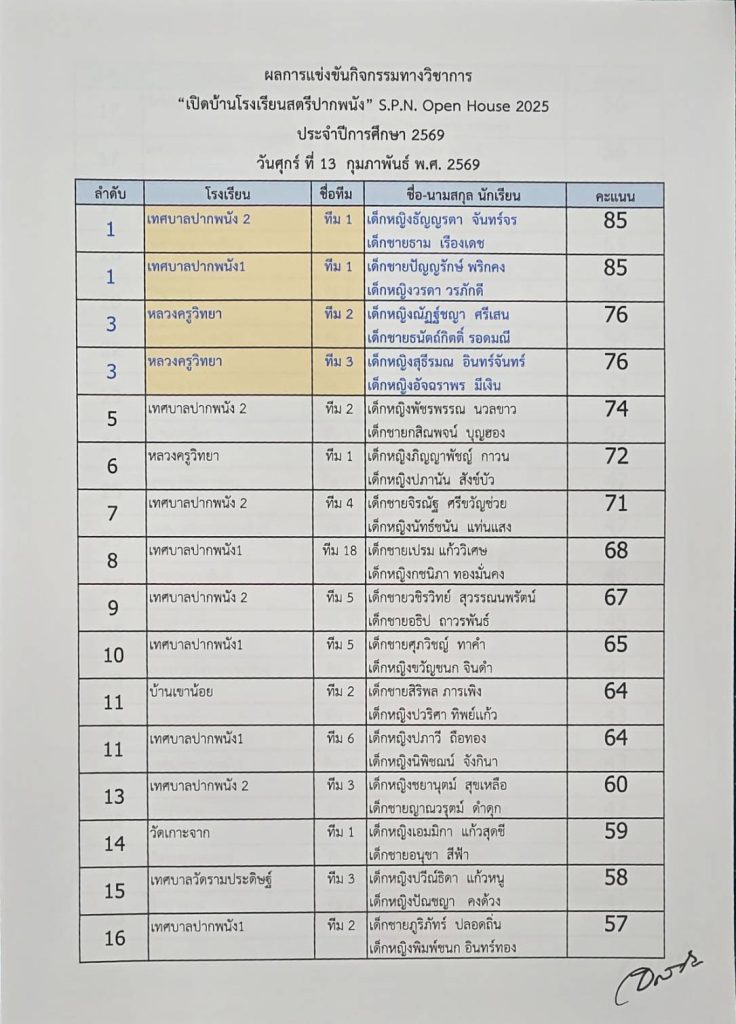 ผลการแข่งขันกิจกรรมทางวิชาการ
“เปิดบ้านโรงเรียนสตรีปากพนัง” S.P.N. Open House 2025
ประจำปีการศึกษา 2569
วันศุกร์ ที่ 13 กุมภาพันธ์ พ.ศ. 2569
ลำดับ โรงเรียน ชื่อทีม ชื่อ-นามสกุล นักเรียน คะแนน
1 เทศบาลปากพนัง 2 ทีม 1 เด็กหญิงธัญญรตา จันทร์จร 85
เด็กชายธาม เรืองเดช
1 เทศบาลปากพนัง1 ทีม 1 เด็กชายปัญญรักษ์ พริกคง 85
เด็กหญิงวรดา วรภักดี
3 หลวงครูวิทยา ทีม 2 เด็กหญิงณัฏฐ์ชญา ศรีเสน 76
เด็กชายธนัตถ์กิตติ์ รอดมณี
3 หลวงครูวิทยา ทีม 3 เด็กหญิงสุธีรมณ อินทร์จันทร์ 76
เด็กหญิงอัจฉราพร มีเงิน
5 เทศบาลปากพนัง 2 ทีม 2 เด็กหญิงพัชรพรรณ นวลขาว 74
เด็กชายกสิณพจน์ บุญฮอง
6 หลวงครูวิทยา ทีม 1 เด็กหญิงภิญญาพัชญ์ กาวน 72
เด็กหญิงปภานัน สังข์บัว
7 เทศบาลปากพนัง 2 ทีม 4 เด็กชายจิรณัฐ ศรีขวัญช่วย 71
เด็กหญิงนัทธ์ชนัน แท่นแสง
8 เทศบาลปากพนัง1 ทีม 18 เด็กชายเปรม แก้ววิเศษ 68
เด็กหญิงกชนิภา ทองมั่นคง
9 เทศบาลปากพนัง 2 ทีม 5 เด็กชายวชิรวิทย์ สุวรรณนพรัตน์ 67
เด็กชายอธิป ถาวรพันธ์
10 เทศบาลปากพนัง1 ทีม 5 เด็กชายศุภวิชญ์ ทาคำ 65
เด็กหญิงขวัญชนก จินดำ
11 บ้านเขาน้อย ทีม 2 เด็กชายสิริพล ภารเพิง 64
เด็กหญิงปวริศา ทิพย์แก้ว
11 เทศบาลปากพนัง1 ทีม 6 เด็กหญิงปภาวี ถือทอง 64
เด็กหญิงนิพิชฌน์ จังกินา
13 เทศบาลปากพนัง 2 ทีม 3 เด็กหญิงชยานุตม์ สุขเหลือ 60
เด็กชายญาณวรุตม์ ดำดุก
14 วัดเกาะจาก ทีม 1 เด็กหญิงเอมมิกา แก้วสุดชี 59
เด็กชายอนุชา สีฟ้า
15 เทศบาลวัดรามประดิษฐ์ ทีม 3 เด็กหญิงปวีณ์ธิดา แก้วหนู 58
เด็กหญิงปัณชญา คงด้วง
16 เทศบาลปากพนัง1 ทีม 2 เด็กชายภูริภัทร์ ปลอดถิ่น 57
เด็กหญิงพิมพ์ชนก อินทร์ทอง